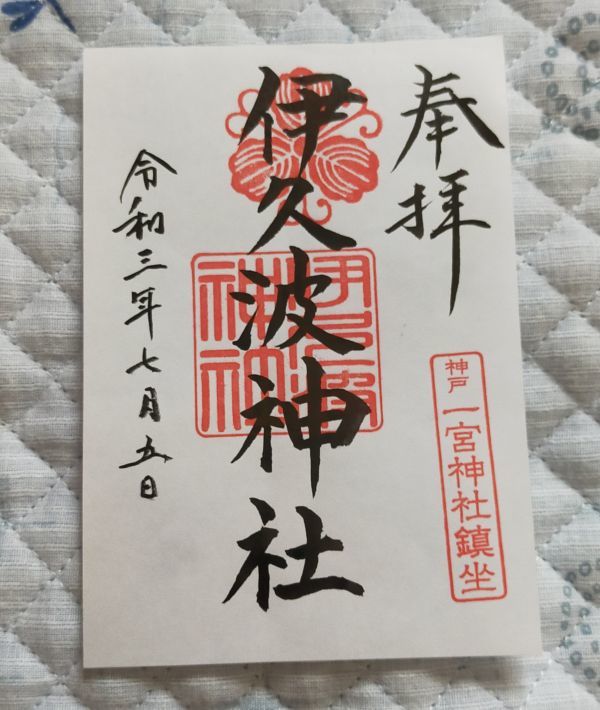 奉拝
神戸 一宮神社鎮坐
伊久波神社
伊久波神社
令和三年七月五日